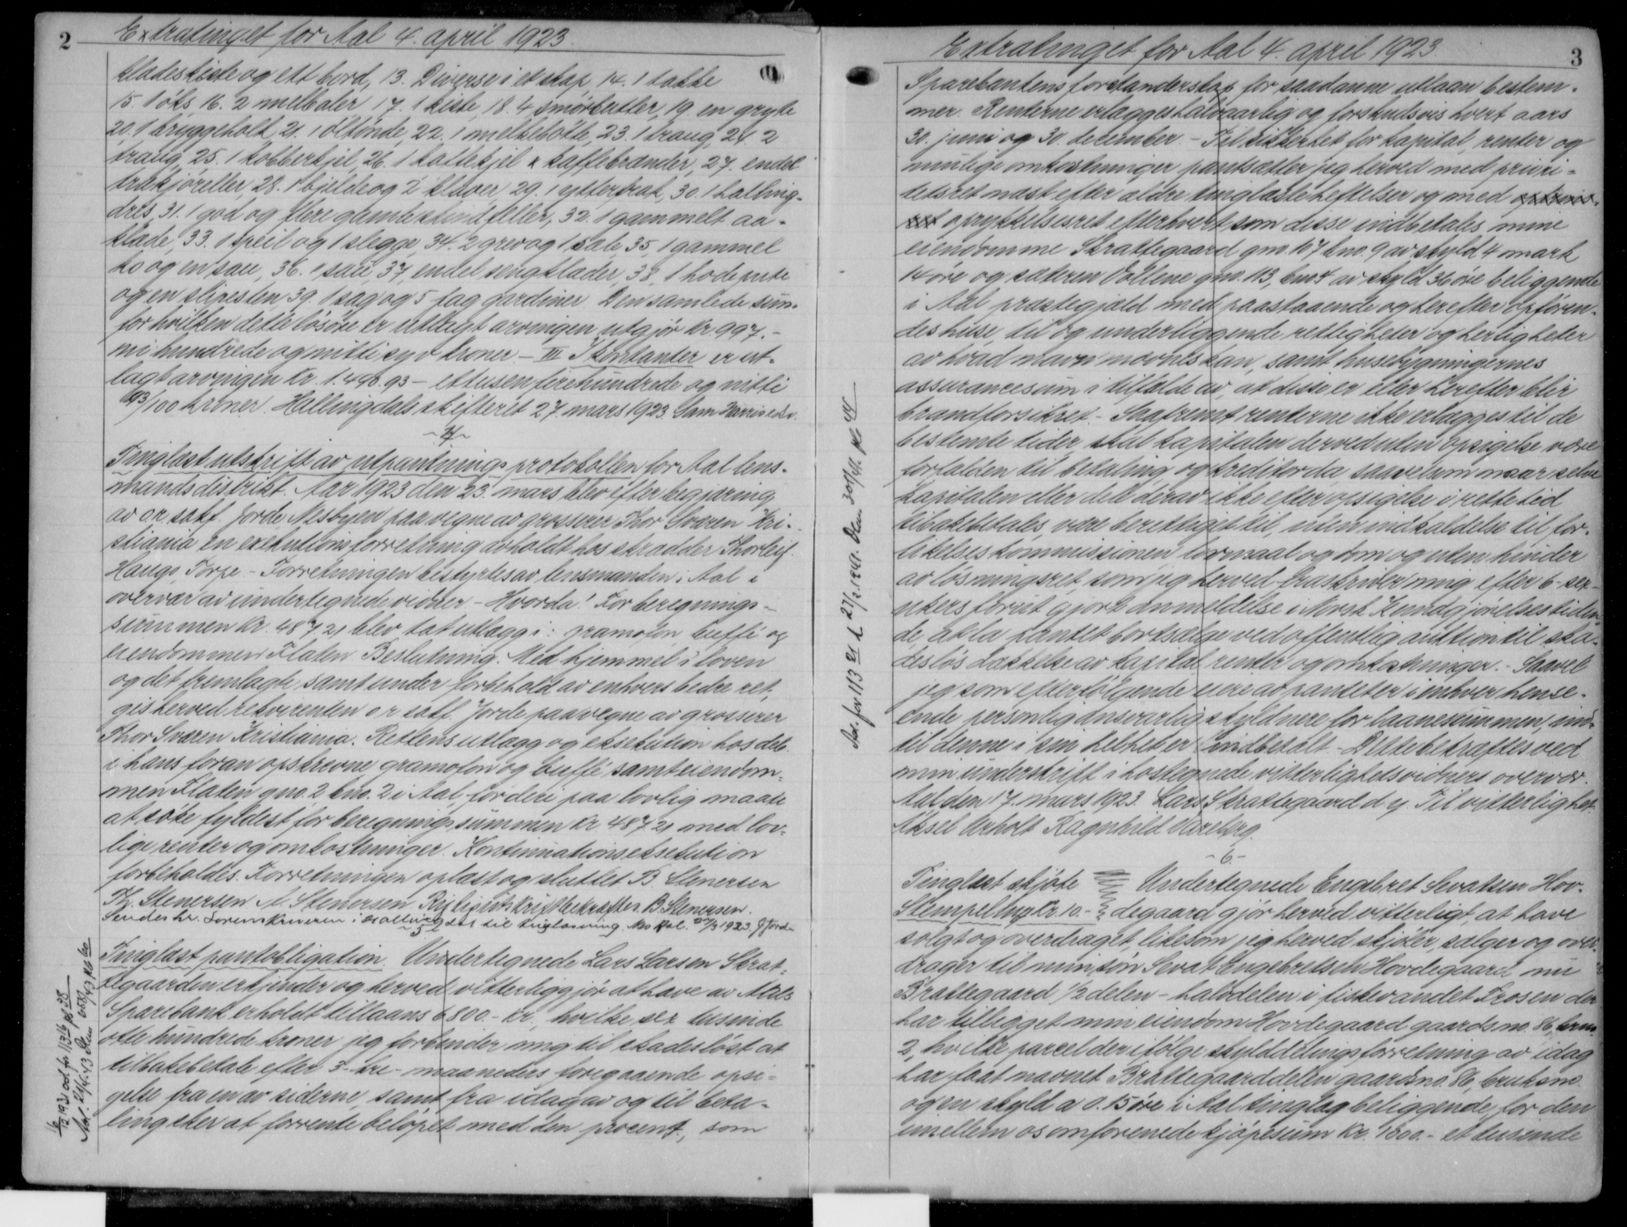 2 Extratinget for Aal 4. april 1923.
kladeskiste og ett bord, 13. Diverse i et skap, 14. 1 takke
15. 1 öks 16. 2 melbaler 17. 1 kiste, 18. 4 smörbutter, 19 en gryte
20. 1 bryggeholk, 21. 1 öltönde, 22. 1 melkebötte, 23. 1 traug, 24. 2
traug, 25. 1 kobberkjel 26. 1 kaffekjel & kaffebrænder, 27. endel
trækjöreller, 28. 1 bjelde og 2 klaver 29. 1 ytterfrak, 30. 1 halling-
dres, 31. 1 god og flere gamle skindfeller, 32. 1 gammelt aa-
klade, 33. 1 speil og 1 slegge, 34. 2 grev og 1 sale 35. 1 gammel
ko og en sau, 36. 1 sau 37, endel sengklæder, 38, 1 hodepute
og en slipesten 39. 1 sag og 5 fag gardiner. Den samlede sum
for hvilken dette lösöre er utlagt arvingen utgjör kr. 997.-
ni hundrede og nitti syv kroner - III I kontanter er ut-
lagt arvingen kr. 1.496.93 - ettusen firehundrede og nitti
93/100 kroner. Hallingdals skifteret 27. mars 1923.
-4-
Tinglæst utskrift av utpantningsprotokollen for Aal lens-
mandsdistrikt. Aar 1923 den 23. mars blev efter begjæring
av o.r. sakf. Jorde Nesbyen paa vegne av grosserer Thor Sværen Kri-
stiania en exekutionsforretning avholdt hos skrædder Thorleif
Hauge, Torpe - Forretningen bestyrtes av lensmanden i Aal i
overvær av undertegnede vidner - Hvorda! For beregnings-
summen kr. 487 21 blev tat utlægg i: gramofon buffé og
eiendommen Flaten Beslutning. Med hjemmel i loven
og det fremlagte samt under forbehold av enhvers bedre ret,
gis herved rekvirenten o.r. sakf. Jorde paa vegne av grosserer
Thor Sværen Kristiania. Rettens utlægg og eksekution hos deb.
i hans foran opskrevne gramofon og buffé samt eiendom-
men Flaten gno. 2 bno. 2 i Aal for deri paa lovlig maate
at söke fyldest for beregningssummen kr. 487 21 med lov-
lige renter og omkostninger. Kontinuationseksekution
forbeholdes. Forretningen oplæst og sluttet B. Stenersen
Kr. Stenersen A. Stenersen Rigtig utskrift bekræftes B. Stenersen.
Sendes hr. Sorenskriveren i Hallingdal til tinglæsning. Nes /3 1923. J Jorde
-5-
Tinglæst pantobligation. Undertegnede Lars Larsen Skrat-
tegaarden erkjender og herved vitterliggjör at have av Aals
Sparebank erholdt tillaans 6800.- kr., hvilke sex tusinde
otte hundrede kroner jeg forbinder mig til skadeslöst at
tilbakebetale efter 3 - tre - maaneders foregaaende opsi-
gelse fra en av siderne samt fra idag av og til beta-
ling sker at forrente belöpet med den procent, som
Extratinget for Aal 4. april 1923 3
Sparebankens forstanderskap for saadanne utlaan bestem-
mer. Renterne erlægges halvaarlig og forskudsvis hvert aars
30. juni og 30. december. - Til sikkerhet for kapital, renter og
mulige omkostninger pantsætter jeg herved med priori-
tetsret næst efter ældre tinglæste heftelser og med
oprykkelsesret efterhvert som disse indbetales mine
eiendomme Skrattegaard gno. 107 bno. 9 av skyld 4 mark
14 öre og sæteren Vollene gno. 113, bno 4 av skyld 36 öre beliggende
i Aal prestegjeld med paastaaende og herefter opfören-
des huse, til og underliggende rettigheter og herligheter
av hvad navn nævnes kan, samt husebygningernes
assurancesum i tilfælde av, at disse er eller herefter blir
brandforsikret. - Saafremt renterne ikke erlægges til de
bestemte tider, skal kapitalen derved uten opsigelse være
forfalden til betaling, og kreditor da saavelsom naar selve
kapitalen eller del derav ikke efter opsigelse i rette tid
tilbakebetales, være berettiget til, uten indkaldelse til for-
likelseskommissionen lovmaal og dom og uten hinder
av lösningsret, som jeg herved fraskriver mig efter 6 - sex
ukers forut gjort anmeldelse i Norsk Kundgjörelsestiden-
de, at la pantet bortsælge ved offentlig auktion til ska-
deslös dækkelse av kapital renter og omkostninger. - Saavel
jeg som efterfölgende eiere av pantet er i enhver hense-
ende personlig ansvarlig skyldnere for laanesummen, ind-
til denne i sin helhet er indbetalt. - Dette bekræftes ved
min underskrift i hostegnede vitterlighetsvidners overvær.
Aal den 17. mars 1923. Lars Skrattegaard d. y. Til vitterlighet:
Aksel Arholt Ragnhild Vareberg.
-6-
Tinglæst skjöte Undertegnede Engebret Sevatsen Hov-
Stempel mrk kr. 10.- degaard gjör herved vitterligt at have
solgt og overdraget, likesom jeg herved skjöter, sælger og over-
drager til min sön Sevat Engebretsen Hovdegaard nu
Brattegaard 1/2 delen - halvdelen i fiskevandet Trosen der
har tilligget min eiendom Hovdegaard gaards no. 86, bruno
2, hvilke parcel der ifölge skylddelingsforretning av idag
har faat navnet Brattegaarddelen gaards no. 86, bruksno.
og en skyld a 0.15 öre i Aal tinglag beliggende, for den
imellem os omforenede kjöpesum kr. 1000.- et tusende